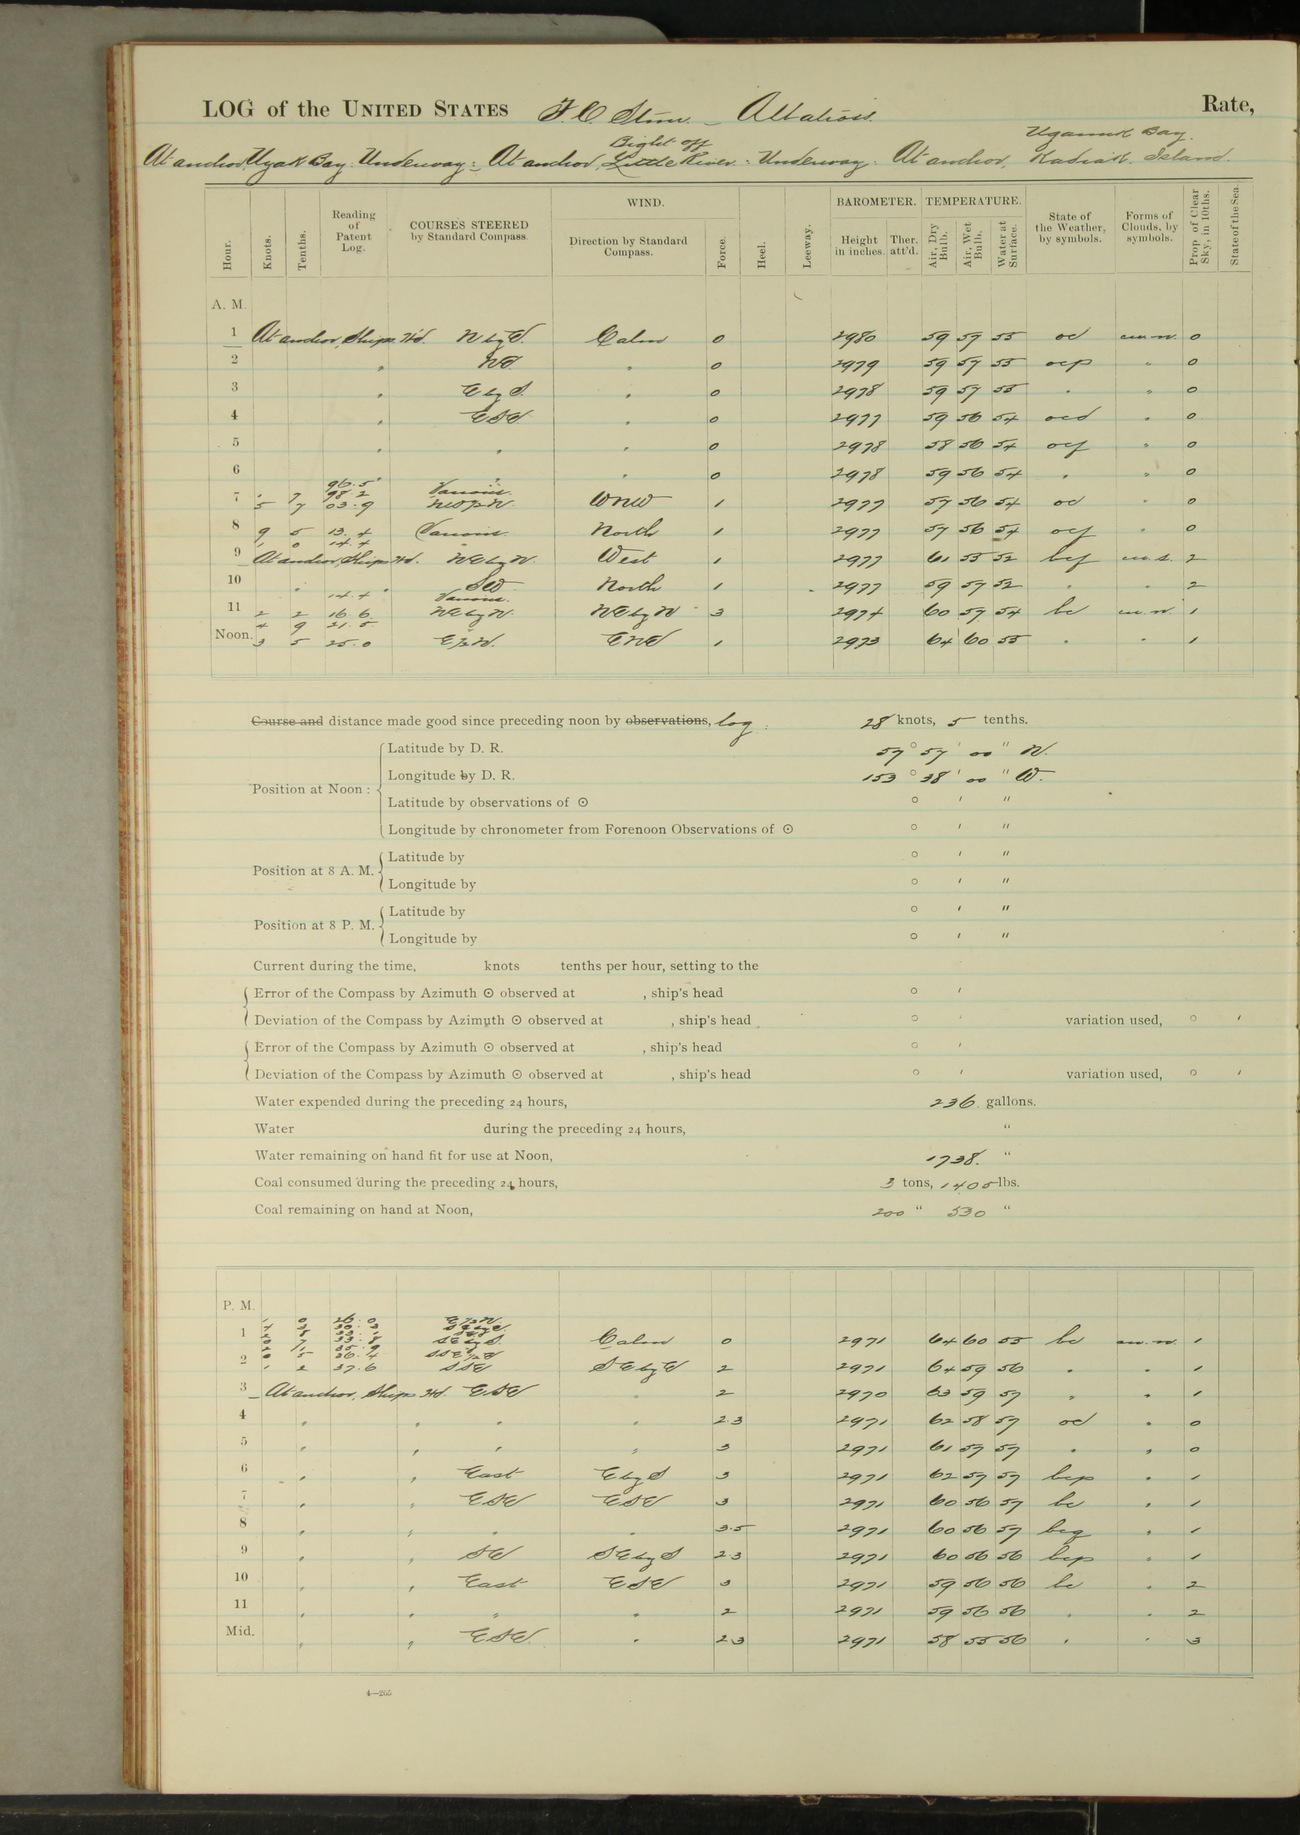 LOG of the UNITED STATES F. C. Stmr. Albatross. Rate,
Bight off Uganuk Bay.
At anchor, Uyak Bay. Underway: At anchor, Little River: Underway. At anchor, Kadiak Island.
WIND. BAROMETER. TEMPERATURE.
Hour. Knots. Tenths. Reading of Patent Log. COURSES STEERED by Standard Compass. Direction by Standard Compass. Force. Heel. Leeway. Height in inches. Ther. att'd. Air, Dry Bulb. Air, Wet Bulb. Water at Surface. State of the Weather, by symbols. Forms of Clouds, by symbols. Prop. of Clear Sky, in 10ths. State of the Sea.
A. M.
1 At anchor, Ships Hd. N by E. Calm 0 2980 59 57 55 oc cu.n. 0
2 " NE. " 0 2979 59 57 55 ocp " 0
3 " E by S. " 0 2978 59 57 55 " " 0
4 " ESE " 0 2977 59 56 54 ocd " 0
5 " " " 0 2978 58 56 54 ocf " 0
6 " " 0 2978 59 56 54 " " 0
96.5
7 98.2 Various.
5 7 03.9 WNW 1 2977 57 56 54 oc " 0
8 9 5 13.4 Various. North 1 2977 57 56 54 ocf " 0
1 0 14.4
9 At anchor, Ships Hd. NE by N. West 1 2977 61 55 52 bcf cu.s. 2
10 " " SW North 1 2977 59 57 52 " " 2
14.4 Various.
11 2 2 16.6 NE by N. NE by N 3 2974 60 57 54 bc cu.n. 1
4 9 21.5
Noon. 3 5 25.0 ENE 1 2973 64 60 55 " " 1
Course and distance made good since preceding noon by observations, log. 28 knots, 5 tenths.
Position at Noon: Latitude by D. R. 57° 57' 00" N.
Longitude by D. R. 153° 38' 00" W.
Latitude by observations of ⊙ ° ' "
Longitude by chronometer from Forenoon Observations of ⊙ ° ' "
Position at 8 A. M. Latitude by ° ' "
Longitude by ° ' "
Position at 8 P. M. Latitude by ° ' "
Longitude by ° ' "
Current during the time, knots tenths per hour, setting to the
Error of the Compass by Azimuth ⊙ observed at , ship's head ° '
Deviation of the Compass by Azimuth ⊙ observed at , ship's head ° ' variation used, ° '
Error of the Compass by Azimuth ⊙ observed at , ship's head ° '
Deviation of the Compass by Azimuth ⊙ observed at , ship's head ° ' variation used, ° '
Water expended during the preceding 24 hours, 236 gallons.
Water during the preceding 24 hours, "
Water remaining on hand fit for use at Noon, 1738. "
Coal consumed during the preceding 24 hours, 3 tons, 1405 lbs.
Coal remaining on hand at Noon, 200 " 530 "
P. M.
1 0 26.0
4 3 30.3
1 Calm 0 2971 64 60 55 bc cu.n. 1
0 5 36.4
2 1 2 37.6 SSE SE by E 2 2971 64 59 56 " " 1
3 At anchor, Ships Hd. ESE " 2 2970 63 59 57 " " 1
4 " " " " 2.3 2971 62 58 57 oc " 0
5 " " " " 3 2971 61 57 57 " " 0
6 " " East E by S 3 2971 62 57 57 bcp " 1
7 " " ESE ESE 3 2971 60 56 57 bc " 1
8 " " " " 3.5 2971 60 56 57 bcq " 1
9 " " SE SE by S 2.3 2971 60 56 56 bcp " 1
10 " " East ESE 3 2971 59 56 56 bc " 2
11 " " " " 2 2971 59 56 56 " " 2
Mid. " " ESE " 2.3 2971 58 55 56 " " 3
4—265